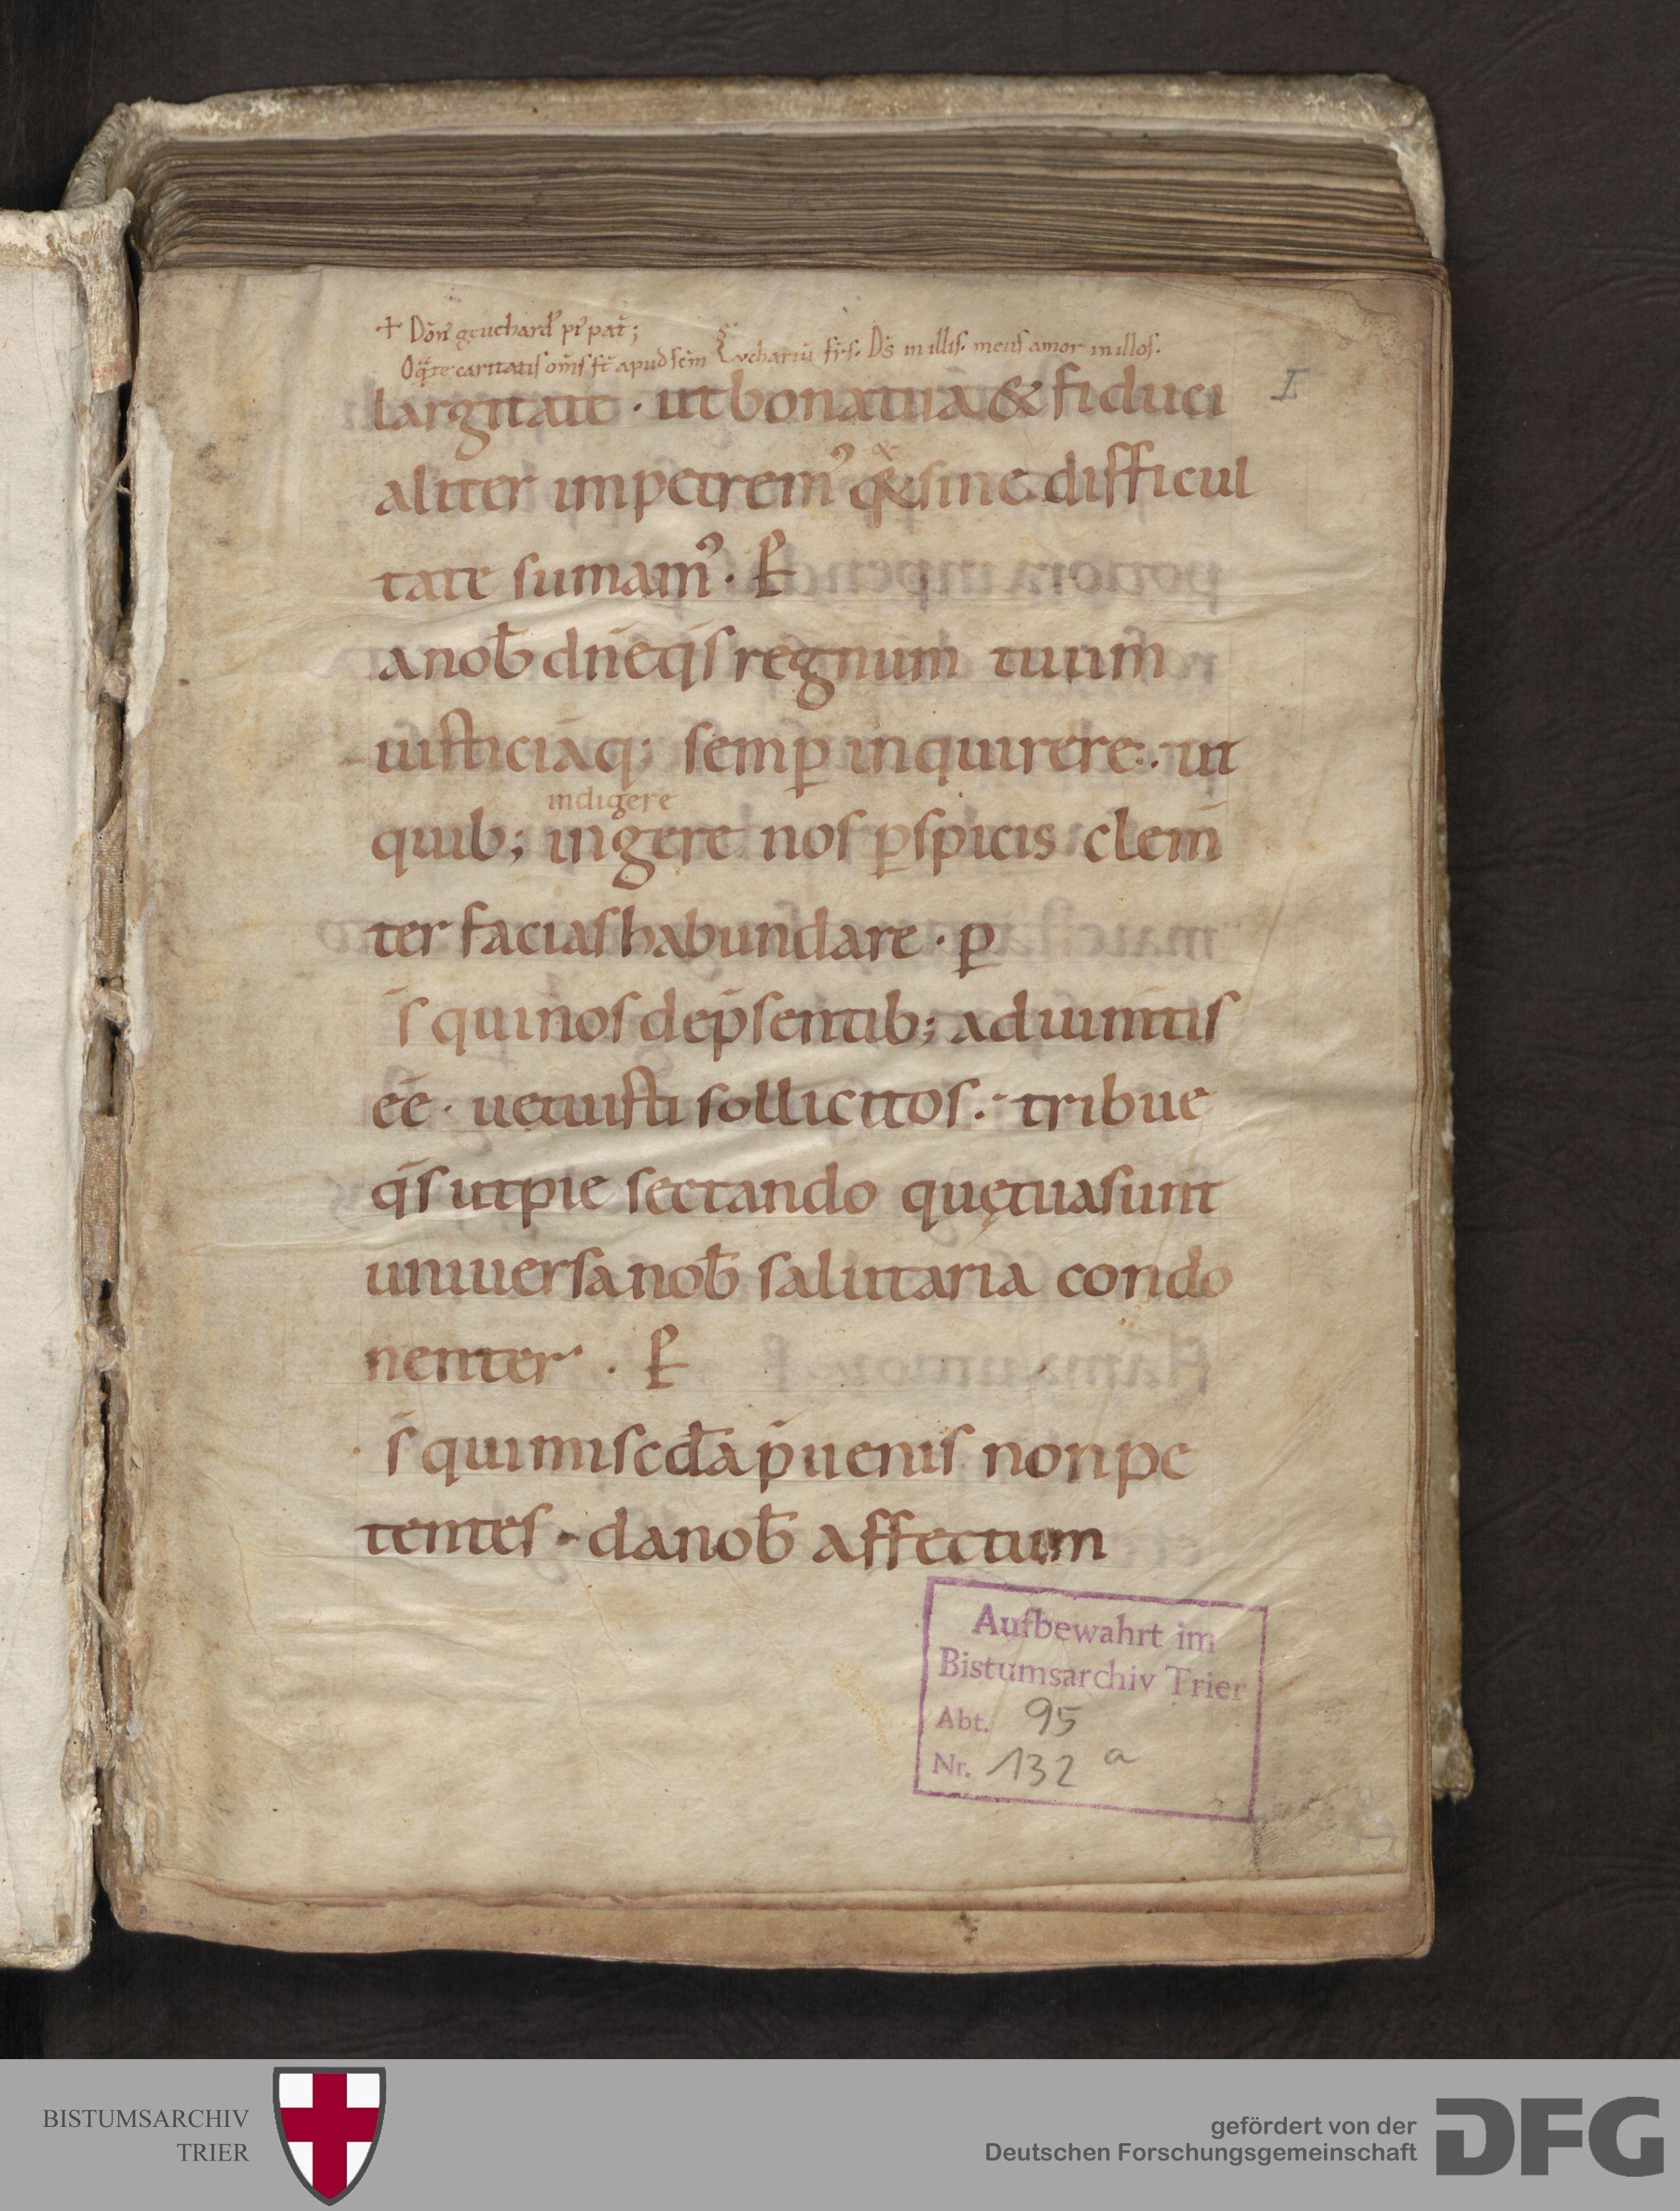 + Dōn̄ geuehard' pr̄ pat̄;
O q̄te caritatis om̄s st̄ apud sc̄m Euchariū fr̄s. Ds̄ in illis. meus amor in illos.
largitate · ut bona tua & fiduci
I
aliter impetrem' q& sine difficul
tate sumam' · P
a nob̄ dn̄e q̄s regnum tuum
iusticiāq; semp̱ inquirere · ut
indigere
quib; ingere nos p̱spicis clem̄
ter facias habundare · p̱
s̄ qui nos de p̄sentib; adiumtis
ēē · uetuisti sollicitos · tribue
q̄s ut pie sectando quę tua sunt
uniuersa nob̄ salutaria condo
nentur · P
s̄ qui miscd̄a p̄uenis non pe
tentes · da nob̄ affectum
Aufbewahrt im
Bistumsarchiv Trier
Abt. 95
Nr. 132 a
BISTUMSARCHIV
TRIER
gefördert von der
Deutschen Forschungsgemeinschaft
DFG